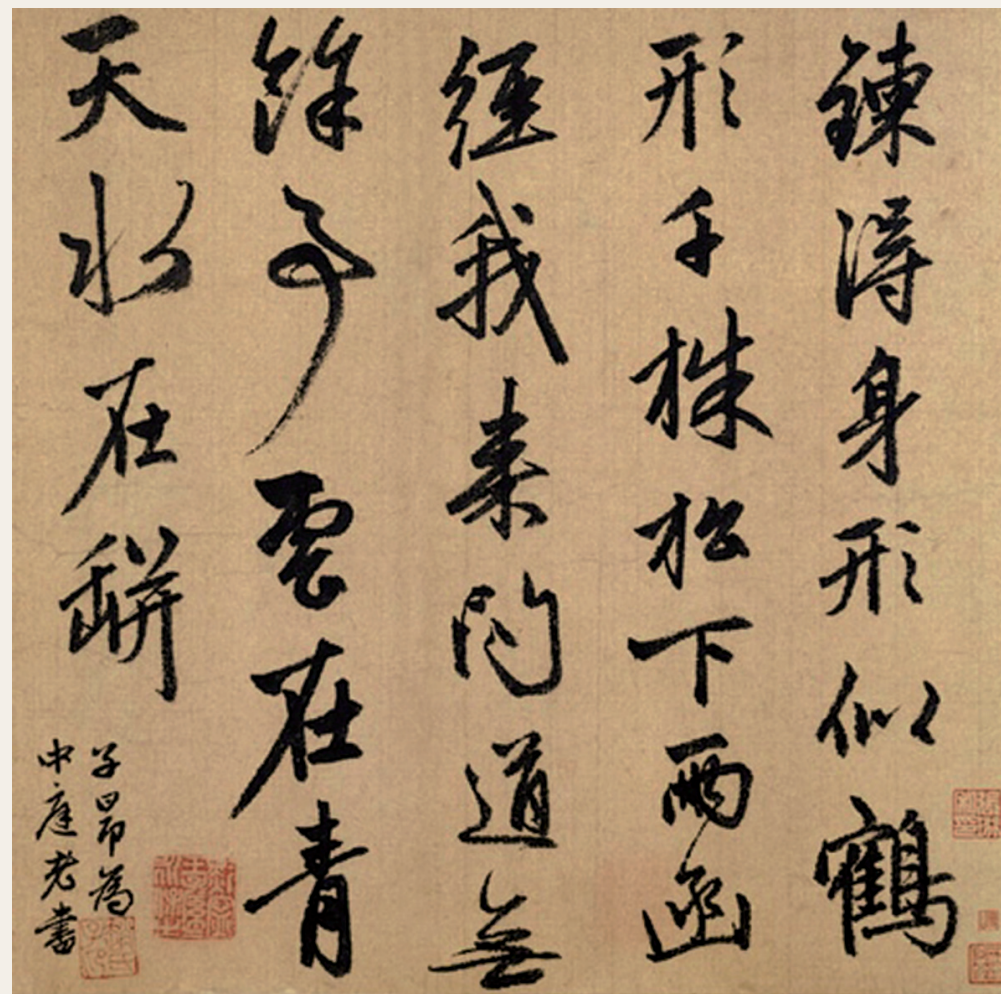 鍊得身形似鶴
形千株松下兩函
經我來問道無
餘事雲在青
天水在缾
子昂為
中庭老書